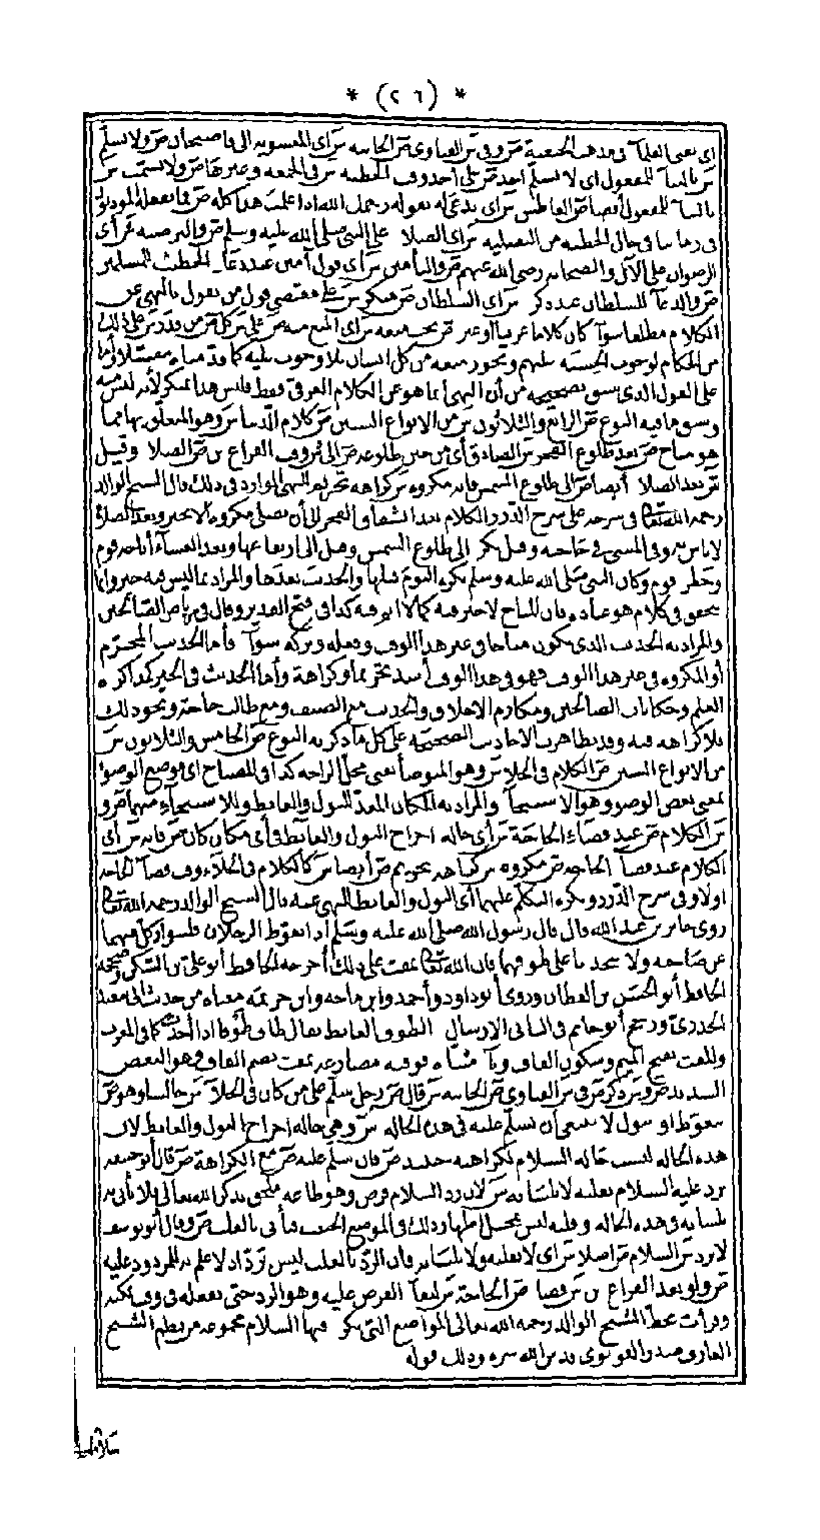 * (٢٦) *
اى بعض العلماء فى مذهب الحنفية ص وفى س الفتاوى ص الخانيه س اى المنسوبه الى قاضيخان ص ولا يسلم
س بالبناء للمفعول اى لا يسلم احد ص على أحد وقت الخطبه س فى الجمعه وغيرها ص ولا يشمت س
بالبناء للمفعول أيضا ص العاطس س اى يدعى له بقوله يرحمك الله اذا علمت هذا كله ص فما يفعله المؤذنون
فى زماننا فى حال الخطبه من التصليه س اى الصلاة على النبى صلى الله عليه وسلم ص والترضيه س أى
الرضوان على الآل والصحابه رضى الله عنهم ص والتأمين س أى قول آمين عند دعاء الخطيب للمسلمين
ص والدعاء للسلطان عند ذكر س أى السلطان ص منكر س على مقتضى قول من يقول بالنهى عن
الكلام مطلقا سواء كان كلاما عرفيا أو غير ص يجب منعه س أى المنع منه ص على س كل ص من قدر س على ذلك
من الحكام لوجوب الحسبه عليهم ويجوز منعه من كل انسان بلا وجوب عليه كما قدمناه مفصلا وأما
على القول الذى سبق تصحيحه من أن النهى انما هو عن الكلام العرفى فقط فليس هذا بمنكر لأنه ليس منه
وسوها فيه النوع ص الرابع والثلاثون س من الانواع الستين ص كلام الدنيا س وهو المتعلق بها مما
هو مباح ص بعد طلوع الفجر س الصادق أى من حين طلوعه ص الى س وقت الفراغ من ص الصلاة وقيل
س بعد الصلاة أيضا ص الى طلوع الشمس فانه مكروه س كراهه تحريم للنهى الوارد فى ذلك قال الشيخ الوالد
رحمه الله تعالى فى شرحه على شرح الدرر الكلام بعد انشقاق الفجر الى أن يصلى مكروه الا بخير وبعد الصلاة
لا باس به وفى المشى فى حاجته وقيل يكره الى طلوع الشمس وقيل الى ارتفاعها وبعد العشاء أباحه قوم
وحظر قوم وكان النبى صلى الله عليه وسلم يكره النوم قبلها والحديث بعدها والمراد بما ليس فيه خير وانما
يتحقق فى كلام هو عباده فان المباح لا خير فيه كما لا اثم فيه كذا فى فتح القدير وقال فى رياض الصالحين
والمراد به الحديث الذى يكون مباحا فى غير هذا الوقت وفعله وتركه سواء فأما الحديث المحرم
أو المكروه فى غير هذا الوقت فهو فى هذا الوقت أشد تحريما وكراهة وأما الحديث فى الخير كمذاكرة
العلم وحكايات الصالحين ومكارم الاخلاق والحديث مع الضيف ومع طالب حاجة ونحو ذلك
بلا كراهه فيه وقد تظاهرت الاحاديث الصحيحه على كل ما ذكرته النوع ص الخامس والثلاثون س
من الانواع الستين ص الكلام فى الخلاء س وهو المتوضأ يعنى محل الراحه كذا فى المصباح اى موضع الوضوء
بمعنى بعض الوضوء وهو الاستنجاء والمراد به المكان المعد للبول والغائط وللاستنجاء منهما ص و
س الكلام ص عند قضاء الحاجة س أى حاله اخراج البول والغائط فى أى مكان كان ص فانه س أى
الكلام عند قضاء الحاجه ص مكروه س كراهه تحريم ص أيضا س كالكلام فى الخلاء وقت قضاء الحاجه
أولا وفى شرح الدرر ويكره التكلم عليهما أى البول والغائط للنهى عنه قال الشيخ الوالد رحمه الله تعالى
روى جابر بن عبد الله قال قال رسول الله صلى الله عليه وسلم اذا تغوط الرجلان فليتوار كل منهما
عن صاحبه ولا يتحدثا على طوفهما فان الله تعالى يمقت على ذلك أخرجه الحافظ أبو على بن السكن وصححه
الحافظ أبو الحسن بن القطان وروى أبو داود وأحمد وابن ماجه وابن خزيمه معناه من حديث أبى سعيد
الخدرى ورجح أبو حاتم فى الثانى الارسال الطوف الغائط يقال طاف طوفا اذا أحدث كما فى المغرب
والمقت بفتح الميم وسكون القاف وتاء مثناه فوقيه مضارعه يمقت بضم القاف وهو البغض
الشديد ص و س ذكر ص فى س الفتاوى ص الخانيه س قال ص رجل سلم على من كان فى الخلاء س جالسا وهو ص
يتغوط او يبول لا ينبغى أن يسلم عليه فى هذه الحاله س وهى حاله اخراج البول والغائط لان
هذه الحاله ليست حاله السلام لكراهته حينئذ ص فان سلم عليه ص مع الكراهة ص قال أبو حنيفه
يرد عليه السلام بقلبه لا بلسانه س لان رد السلام فرض وهو طاعه ملحق بذكر الله تعالى فلا يأتى به
بلسانه فى هذه الحاله وقلبه ليس بمحل اظهار ذلك فى الموضع الخبث فيأتى بالقلب ص وقال أبو يوسف
لا يرد س السلام ص أصلا س أى لا بقلبه ولا بلسانه فان الرد بالقلب ليس برد اذ لا علم به للمردود عليه
ص ولو بعد الفراغ من س قضاء ص الحاجة س لبقاء الفرض عليه وهو الرد حتى يفعله فى وقت يمكنه
وقرأت بخط الشيخ الوالد رحمه الله تعالى المواضع التى يكره فيها السلام مجموعه من نظم الشيخ
العارف صدر القونوى قدس الله سره وذلك قوله
سلامك